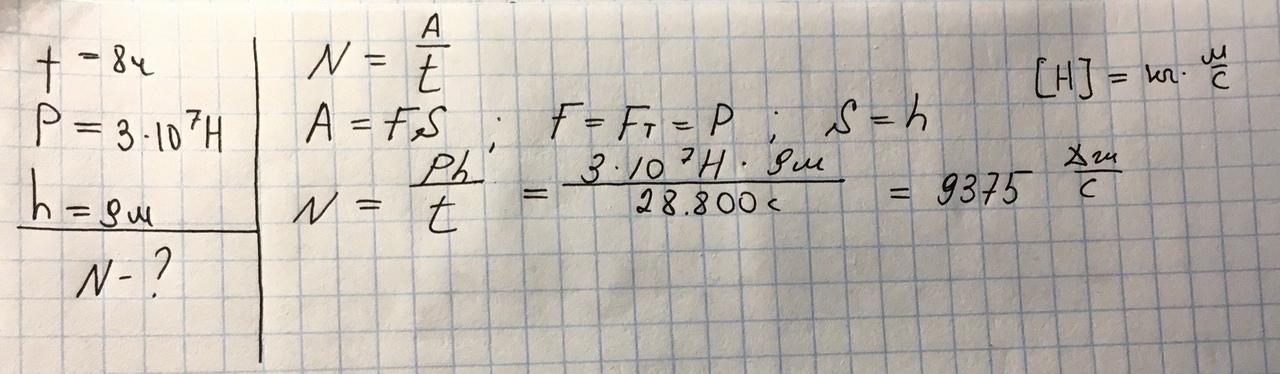 t = 8ч
P = 3·10⁷Н
h = 9м
N - ?
N = A/t
A = FS ; F = Fт = P ; S = h
N = Ph/t = 3·10⁷Н · 9м / 28.800с = 9375 Дж/с
[Н] = кг · м/с